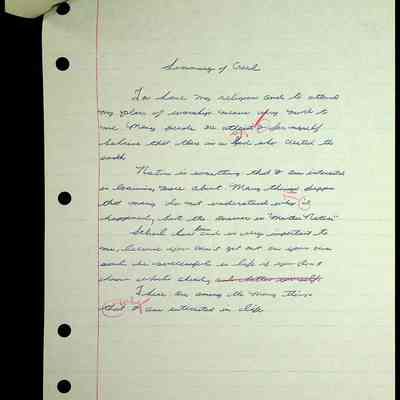 Summary of Creed
To have my religion and to attend
my place of worship means very much to
me. Many people are I for myself
believe that there is a God who created the
earth.
Nature is something that I am interested
in learning more about. Many things happen
that many do not understand why it
happened, but the answer is "Mother Nature".
School has been and is very important to
me, because you can't get out on your own
and be successful in life if you don't
know which already and better yourself.
These are among the many things
that I am interested in life.